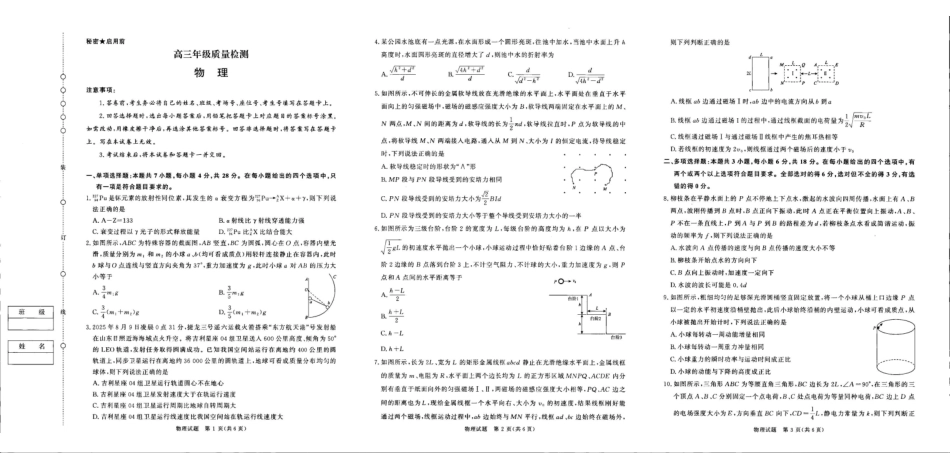 秘密★启用前
高三年级质量检测
物 理
注意事项：
1. 答卷前，考生务必将自己的姓名、班级、考场号、座位号、考生号填写在答题卡上。
2. 回答选择题时，选出每小题答案后，用铅笔把答题卡上对应题目的答案标号涂黑。
如需改动，用橡皮擦干净后，再选涂其他答案标号。回答非选择题时，将答案写在答题卡
上。写在本试卷上无效。
3. 考试结束后，将本试卷和答题卡一并交回。
一、单项选择题：本题共 7 小题，每小题 4 分，共 28 分。在每小题给出的四个选项中，只
有一项是符合题目要求的。
法正确的是
A. A−Z=133
B. α 射线比 γ 射线穿透能力强
C. 衰变过程以 γ 光子的形式释放能量
2. 如图所示，ABC 为特殊容器的截面图，AB 竖直，BC 为圆弧，圆心在 O 点，容器内壁光
滑，质量分别为 m₁ 和 m₂ 的小球 a、b(均可看成质点)用轻杆连接静止在容器内，此时
b 球与 O 点连线与竖直方向夹角为 37°，重力加速度为 g，此时小球 a 对 AB 的压力大
小等于
A. 3/4 m₁g
B. 3/5 m₁g
C. 3/4 (m₁+m₂)g
D. 3/5 (m₁+m₂)g
3. 2025 年 8 月 9 日凌晨 0 点 31 分，捷龙三号遥六运载火箭搭乘“东方航天港”号发射船
在山东日照近海海域点火升空，将吉利星座 04 组卫星送入 600 公里高度、倾角为 50°
的 LEO 轨道，发射任务取得圆满成功。已知我国空间站运行在离地约 400 公里的圆
轨道上，同步卫星运行在离地约 36 000 公里的圆轨道上，地球可看成质量分布均匀的
球体，则下列说法正确的是
A. 吉利星座 04 组卫星运行轨道圆心不在地心
B. 吉利星座 04 组卫星发射速度大于在轨运行速度
C. 吉利星座 04 组卫星运行周期比地球自转周期大
D. 吉利星座 04 组卫星运行线速度比我国空间站在轨运行线速度大
物理试题 第 1 页(共 6 页)
班 级
姓 名
装
订
线
4. 某公园水池底有一点光源，在水面形成一个圆形亮斑，往池中加水，当池中水面上升 h
高度时，水面圆形亮斑的直径增大了 d，则池中水的折射率为
A. √(h²+d²)/d
B. √(4h²+d²)/d
C. d/√(d²−h²)
D. d/√(4h²−d²)
5. 如图所示，不可伸长的金属软导线放在光滑绝缘的水平面上，水平面处在垂直于水平
面向上的匀强磁场中，磁场的磁感应强度大小为 B，软导线两端固定在水平面上的 M、
N 两点，M、N 间的距离为 d，软导线的长为 1/2 πd，软导线拉直时，P 点为软导线的中
点，将软导线 M、N 两端接入电路，通入从 M 到 N、大小为 I 的恒定电流，待导线稳定
时，下列说法正确的是
A. 软导线稳定时的形状为“Λ”形
B. MP 段与 PN 段导线受到的安培力相同
C. PN 段导线受到的安培力大小为 √2/2 BId
D. PN 段导线受到的安培力大小等于整个导线受到安培力大小的一半
6. 如图所示为三级台阶，台阶 2 的宽度为 L，每级台阶的高度均为 h，在 P 点以大小为
√(1/2 gL) 的初速度水平抛出一个小球，小球运动过程中恰好贴着台阶 1 边缘的 A 点、台
阶 2 边缘的 B 点落到台阶 3 上，不计空气阻力，不计球的大小，重力加速度为 g，则 P
点和 A 点间的水平距离等于
A. (h−L)/2
B. (h+L)/2
C. h−L
D. h+L
7. 如图所示，长为 2L、宽为 L 的矩形金属线框 abcd 静止在光滑绝缘水平面上，金属线框
的质量为 m、电阻为 R，水平面上两个边长均为 L 的正方形区域 MNPQ、ACDE 内分
别有垂直于纸面向外的匀强磁场Ⅰ、Ⅱ，两磁场的磁感应强度大小相等，PQ、AC 边之
间的距离也为 L，现给金属线框一个水平向右、大小为 v₀ 的初速度，结果线框刚好能
通过两个磁场，线框运动过程中，ab 边始终与 MN 平行，线框 ad、bc 边始终在磁场外，
物理试题 第 2 页(共 6 页)
则下列判断正确的是
A. 线框 ab 边通过磁场Ⅰ时，ab 边中的电流方向从 b 到 a
C. 线框通过磁场Ⅰ与通过磁场Ⅱ线框中产生的焦耳热相等
D. 若线框的初速度为 2v₀，则线框通过两个磁场后的速度小于 v₀
二、多项选择题：本题共 3 小题，每小题 6 分，共 18 分。在每小题给出的四个选项中，有
两个或两个以上选项符合题目要求。全部选对的得 6 分，选对但不全的得 3 分，有选
错的得 0 分。
8. 柳枝条在平静水面上的 P 点不停地上下点水，激起的水波向四周传播，水面上有 A、B
两点，波刚传播到 B 点时，B 点正向下振动，此时 A 点正在平衡位置向上振动，A、B、
P 不在一条直线上，P 到 A 与 P 到 B 的路程差为 d，若柳枝条点水看成简谐运动，振
动的频率为 f，则下列说法正确的是
A. 水波向 A 点传播的速度与向 B 点传播的速度大小不等
B. 柳枝条开始点水的方向向下
C. B 点向上振动时，加速度一定向下
D. 水波的波长可能是 0.4d
9. 如图所示，粗细均匀的足够深光滑圆桶竖直固定放置，将一个小球从桶上口边缘 P 点
以一定的水平初速度沿桶壁抛出，此后小球始终沿桶的内壁运动，小球可看成质点，从
小球被抛出开始计时，下列说法正确的是
A. 小球每转动一周动能增量相同
B. 小球每转动一周重力冲量相同
C. 小球重力的瞬时功率与运动时间成正比
D. 小球的动能与下降的高度成正比
10. 如图所示，三角形 ABC 为等腰直角三角形，BC 边长为 2L，∠A=90°，在三角形的三
个顶点 A、B、C 分别固定一个点电荷，B、C 处点电荷为等量同种电荷，BC 边上 D 点
的电场强度大小为 E，方向垂直 BC 向下，CD=1/4 L，静电力常量为 k，则下列判断正
物理试题 第 3 页(共 6 页)